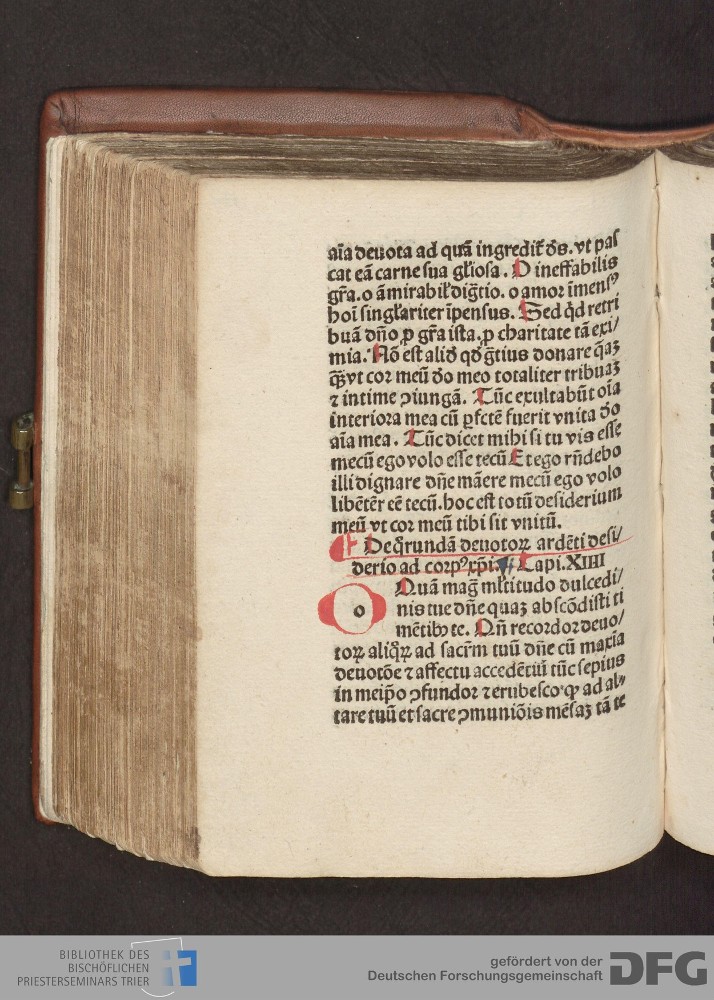 aīa deuota ad quā ingredit᷑ dꝰs. vt paſ
cat eā carne ſua gl̄ioſa. O ineffabilis
gr̄a. o āmirabil̓ diḡtio. o amor īmenſꝰ
hoī ſingl̓ariter īpenſus. Sed qͥd retri
buā dn̄o ꝓ gr̄a iſta. ꝓ charitate tā exi/
mia. Nō eſt aliͩ qͩ ḡtius donare q̄aꝫ
qꝫ̄ vt cor meū do meo totaliter tribuaꝫ
⁊ intime ꝯiungā. Tūc exultabūt oīa
interiora mea cū ꝑfcte fuerit vnita dō
aīa mea. Tūc dicet mihi ſi tu vis eſſe
mecū ego volo eſſe tecū Et ego rn̄debo
illi dignare dn̄e mānere mecū ego volo
libēter eē tecū. hoc eſt totū deſiderium
meū vt cor meū tibi ſit vnitū.
De qͦrundā deuotoꝝ ardēti deſi/
derio ad corpꝰ xp̄i. Capi. XIIII
o Quā maḡ ml̓titudo dulcedi/
nis tue dn̄e quaꝫ abſcōdiſti ti
mētibꝰ te. Qn̄ recordor deuo/
toꝝ aliqͦꝝ ad ſacr̄m tuū dn̄e cū maxīa
deuotōe ⁊ affectu accedētiū tūc ſepius
in meip̄o ꝯfundor ⁊ erubeſco ꝙ ad al/
tare tuū et ſacre ꝯmuniōis mēſaꝫ tā te
BIBLIOTHEK DES
BISCHÖFLICHEN
PRIESTERSEMINARS TRIER
gefördert von der
Deutschen Forschungsgemeinschaft
DFG